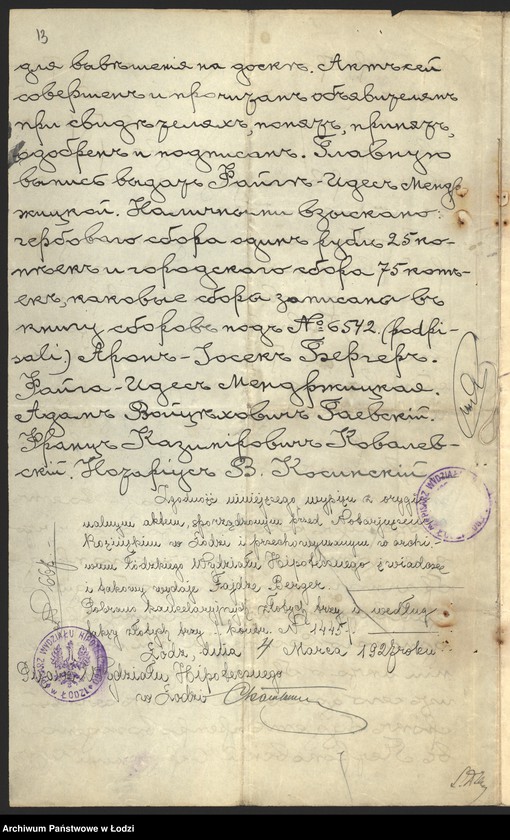 13
для вывѣшенія на доскѣ. Актъ сей
совершенъ и прочитанъ объявителямъ
при свидѣтеляхъ, понятъ, принятъ,
одобренъ и подписанъ. Главную
выпись выдать Файгѣ-Идесъ Мендр-
жицкой. Наличными взыскано:
гербоваго сбора одинъ рубль 25 ко-
пѣекъ и городскаго сбора 75 копѣ-
екъ, каковые сборы записаны въ
книгу сборовъ подъ № 6542. (podpi-
sali) Аронъ-Іосекъ Бергеръ.
Файга-Идесъ Мендржицкая.
Адамъ Войцѣховичъ Гаевскій.
Францъ Казиміровичъ Ковалев-
скій. Нотаріусъ В. Косинскій
Zgodność niniejszego wypisu z orygi-
nalnym aktem, sporządzonym przed Notarjuszem
Kosińskim w Łodzi i przechowywanym w archi-
wum Łódzkiego Wydziału Hipotecznego zaświadcza
i takowy wydaje Fajdze Berger.
Pobrano kancelaryjnych złotych trzy i według
złotych trzy kontr. № 1445
Łódź, dnia 4 Marca 192 roku
Pisarz Wydziału Hipotecznego
w Łodzi
PISARZ WYDZIAŁU HIPOTECZNEGO
w ŁODZI
PISARZ WYDZIAŁU
Archiwum Państwowe w Łodzi